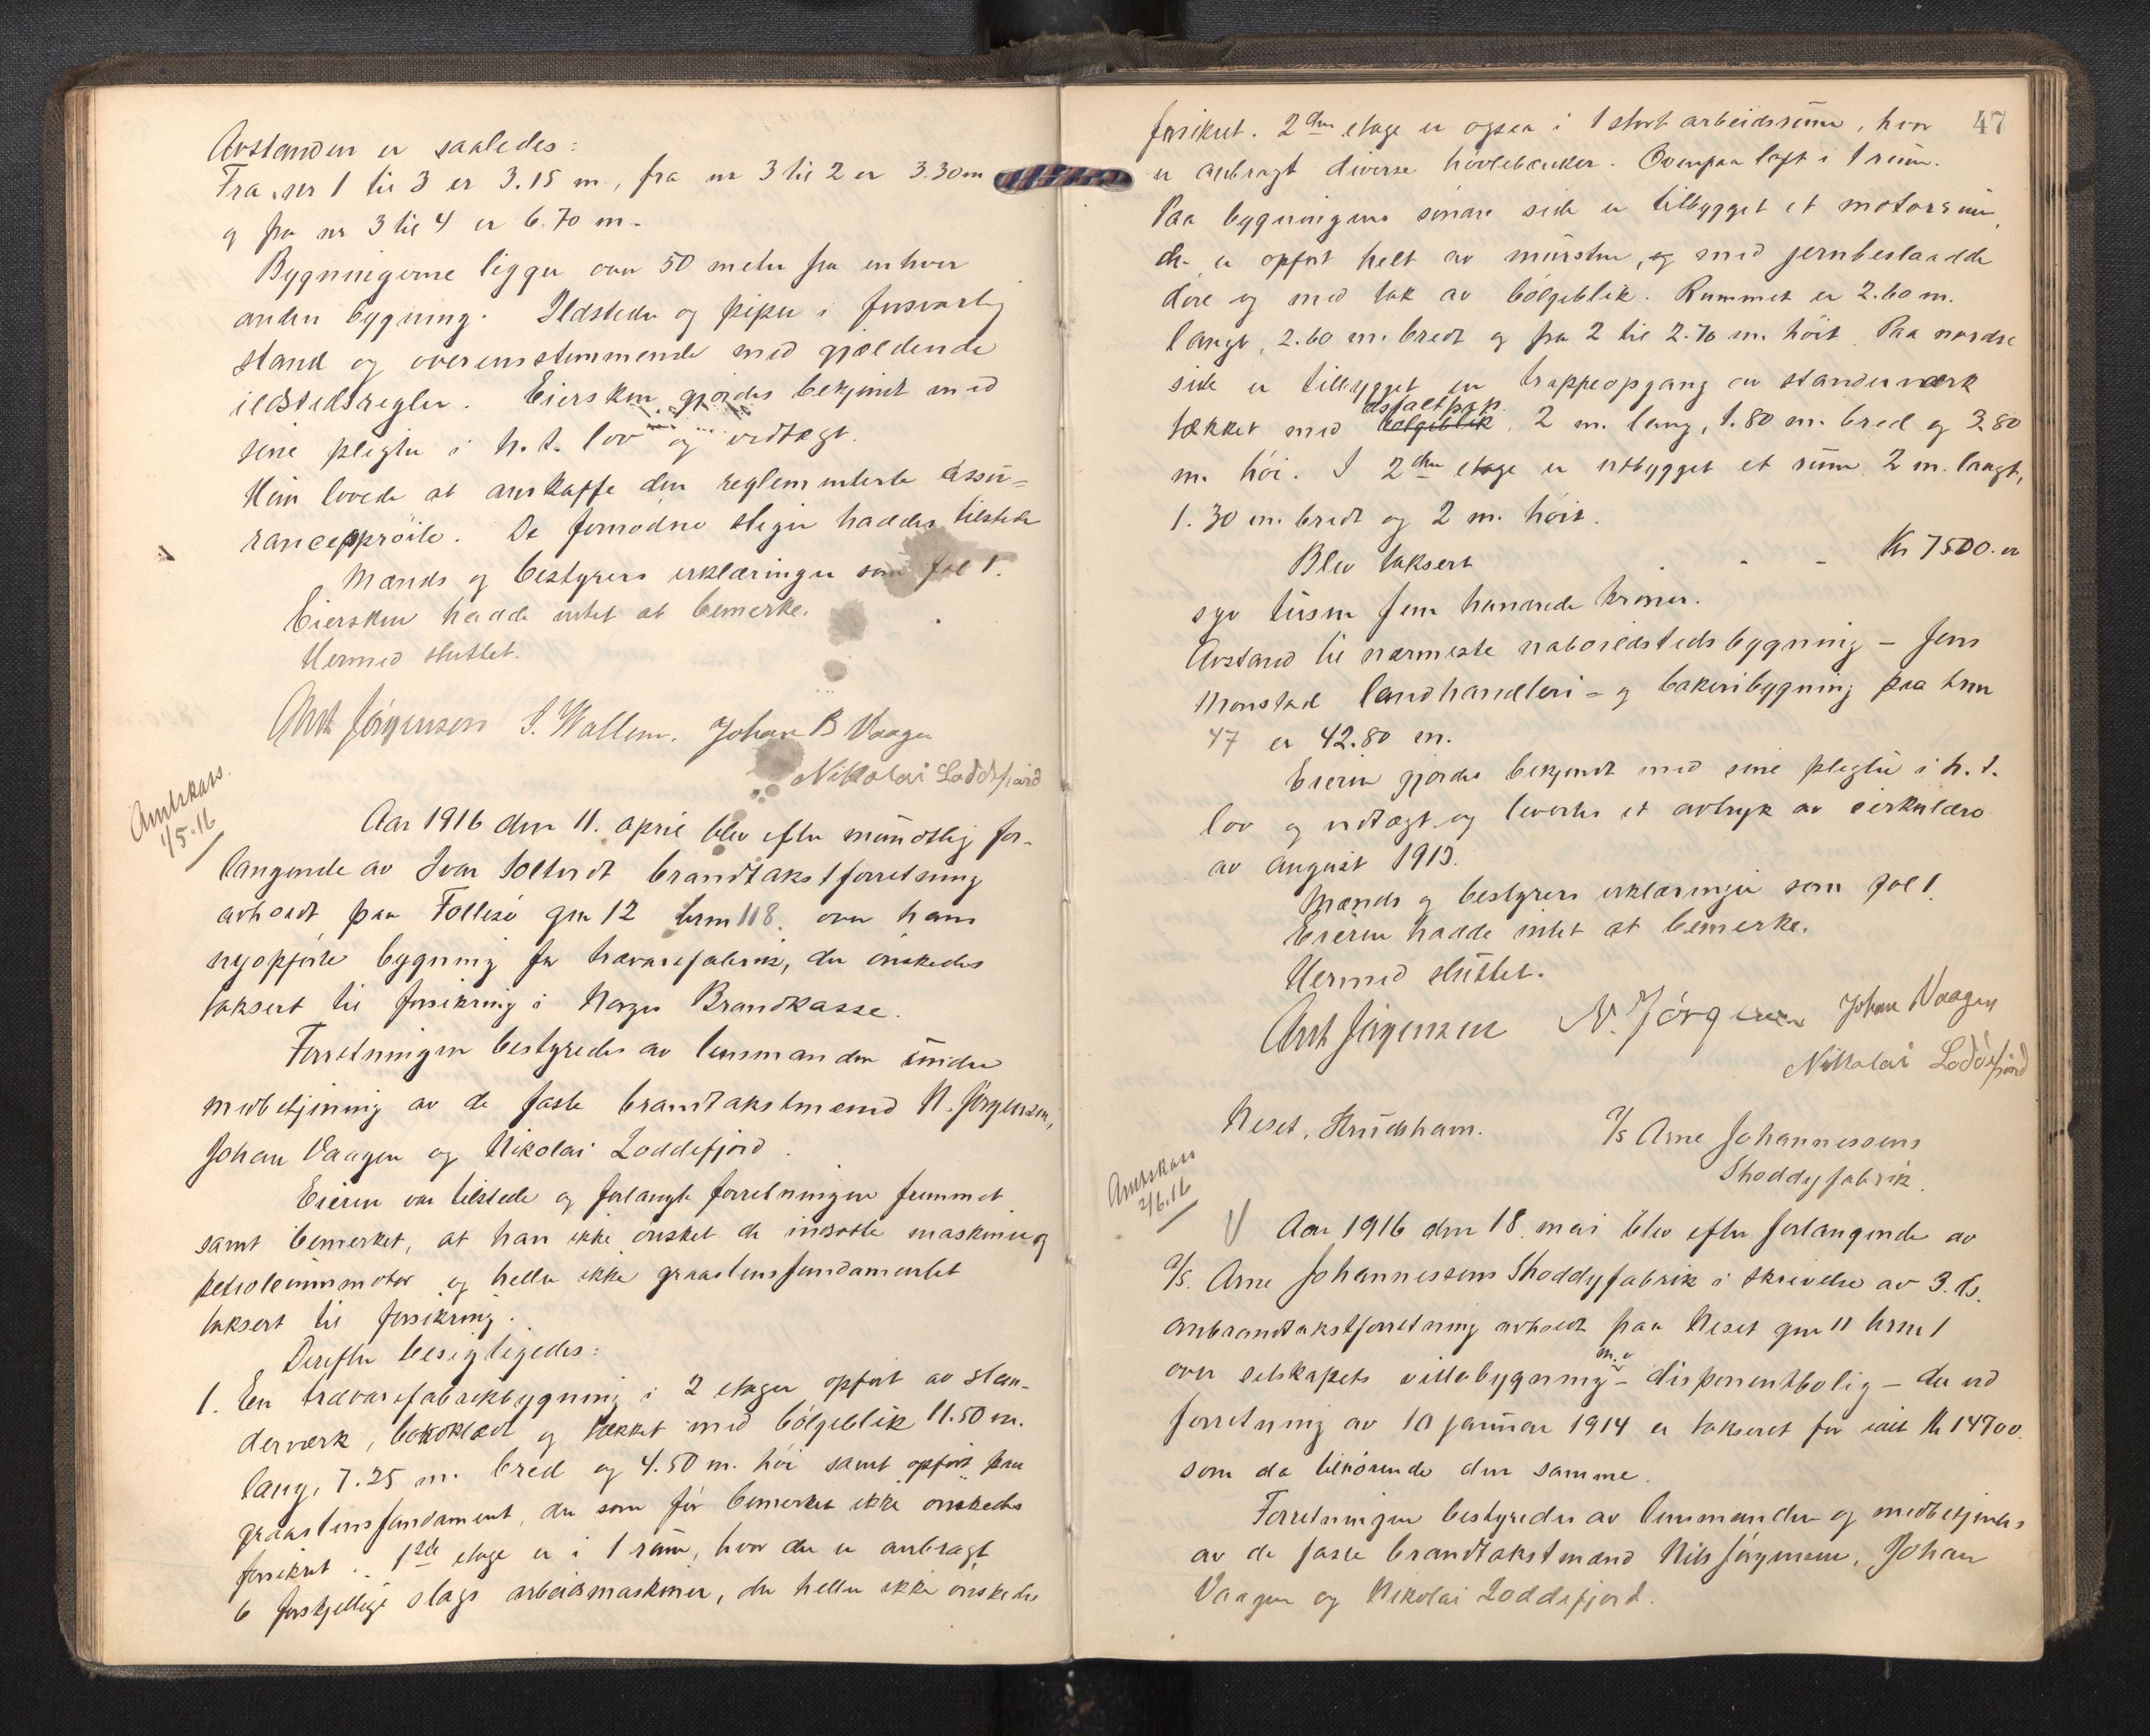 Avstanden er saaledes:
Fra nr 1 til 3 er 3.15 m, fra nr 3 til 2 er 3.30 m
og fra nr 3 til 4 er 6.70 m.
Bygningerne ligger over 50 meter fra enhver
anden bygning. Ildsteder og piper i forsvarlig
stand og overensstemmende med gjældende
ildstedsregler. Eiersken gjordes bekjendt med
sine pligter i h. t. lov og vedtægt.
Hun lovede at anskaffe den reglementerte assu=
ranceprøile. De fornødne stiger haddes tilstede
Mænds og bestyrers erklæringer som fol 1.
Eiersken hadde intet at bemerke.
Hermed sluttet.
Ant Jørgensen S. Wallem. Johan B Vaagen
Nikolai Loddefjord
Amtskass.
1/5.16
Aar 1916 den 11. april blev efter mundtlig for-
langende av Ivar Soltvedt brandtakstforretning
avholdt paa Follesø gnr 12 brnr 118. over hans
nyopførte bygning for trævarefabrik, der ønskedes
taksert til forsikring i Norges Brandkasse.
Forretningen bestyredes av lensmanden under
medbetjening av de faste brandtakstmænd N. Jørgensen,
Johan Vaagen og Nikolai Loddefjord.
Eieren var tilstede og forlangte forretningen fremmet
samt bemerket, at han ikke ønsket de indsatte maskiner og
petroleummotor og heller ikke graastensfundamentet
taksert til forsikring.
Derefter besigtigedes:
1. En trævarefabrikbygning i 2 etager opført av stan-
derværk, bordklædt og tækket med bølgeblik 11.50 m.
lang, 7.25 m. bred og 4.50 m. høi samt opført paa
graastensfundament, der som før bemerket ikke ønskedes
forsikret. 1ste etage er i 1 rum, hvor der er anbragt
6 forskjellige slags arbeidsmaskiner, der heller ikke ønskedes
47
forsikret. 2den etage er ogsaa i 1 stort arbeidsrum, hvor
er anbragt diverse høvlebænker. Ovenpaa loft i 1 rum.
Paa bygningens søndre side er tilbygget et motorrum,
der er opført helt av murstein, og med jernbeslaadde
døre og med tak av bølgeblik. Rummet er 2.60 m.
langt, 2.60 m. bredt og fra 2 til 2.70 m. høit. Paa nordre
side er tilbygget en trappeopgang av standerværk
tækket med bølgeblik asfaltpap. 2 m. lang, 1.80 m. bred og 3.80
m. høi. I 2den etage er utbygget et rum 2 m. langt,
1.30 m. bredt og 2 m. høit.
Blev taksert - - Kr 7500. er
syv tusen fem hundrede kroner.
Avstand til nærmeste naboildstedsbygning - Jens
Monstad landhandleri= og bakeribygning paa brnr
47 er 42.80 m.
Eieren gjordes bekjendt med sine pligter i h. t.
lov og vedtægt og levertes et avtryk av cirkulære
av august 1913.
Mænds og bestyrers erklæringer som fol 1.
Eieren hadde intet at bemerke.
Hermed sluttet.
Ant Jørgensen N. Jørgensen Johan Vaagen
Nikolai Loddefjord
Neset, Strudshavn. A/S Arne Johannessens
Shoddyfabrik.
Amtskass
2/6.16
Aar 1916 den 18. mai blev efter forlangende av
A/S. Arne Johannessens Shoddyfabrik i skrivelse av 3. ds.
ombrandtakstforretning avholdt paa Neset gnr 11 brnr 1
over selskapets villabygning m.v. - disponentbolig - der ved
forretning av 10 januar 1914 er takseret for ialt Kr 14700.
som da tilhørende den samme.
Forretningen bestyredes av lensmanden og medbetjentes
av de faste brandtakstmænd Nils Jørgensen, Johan
Vaagen og Nikolai Loddefjord.